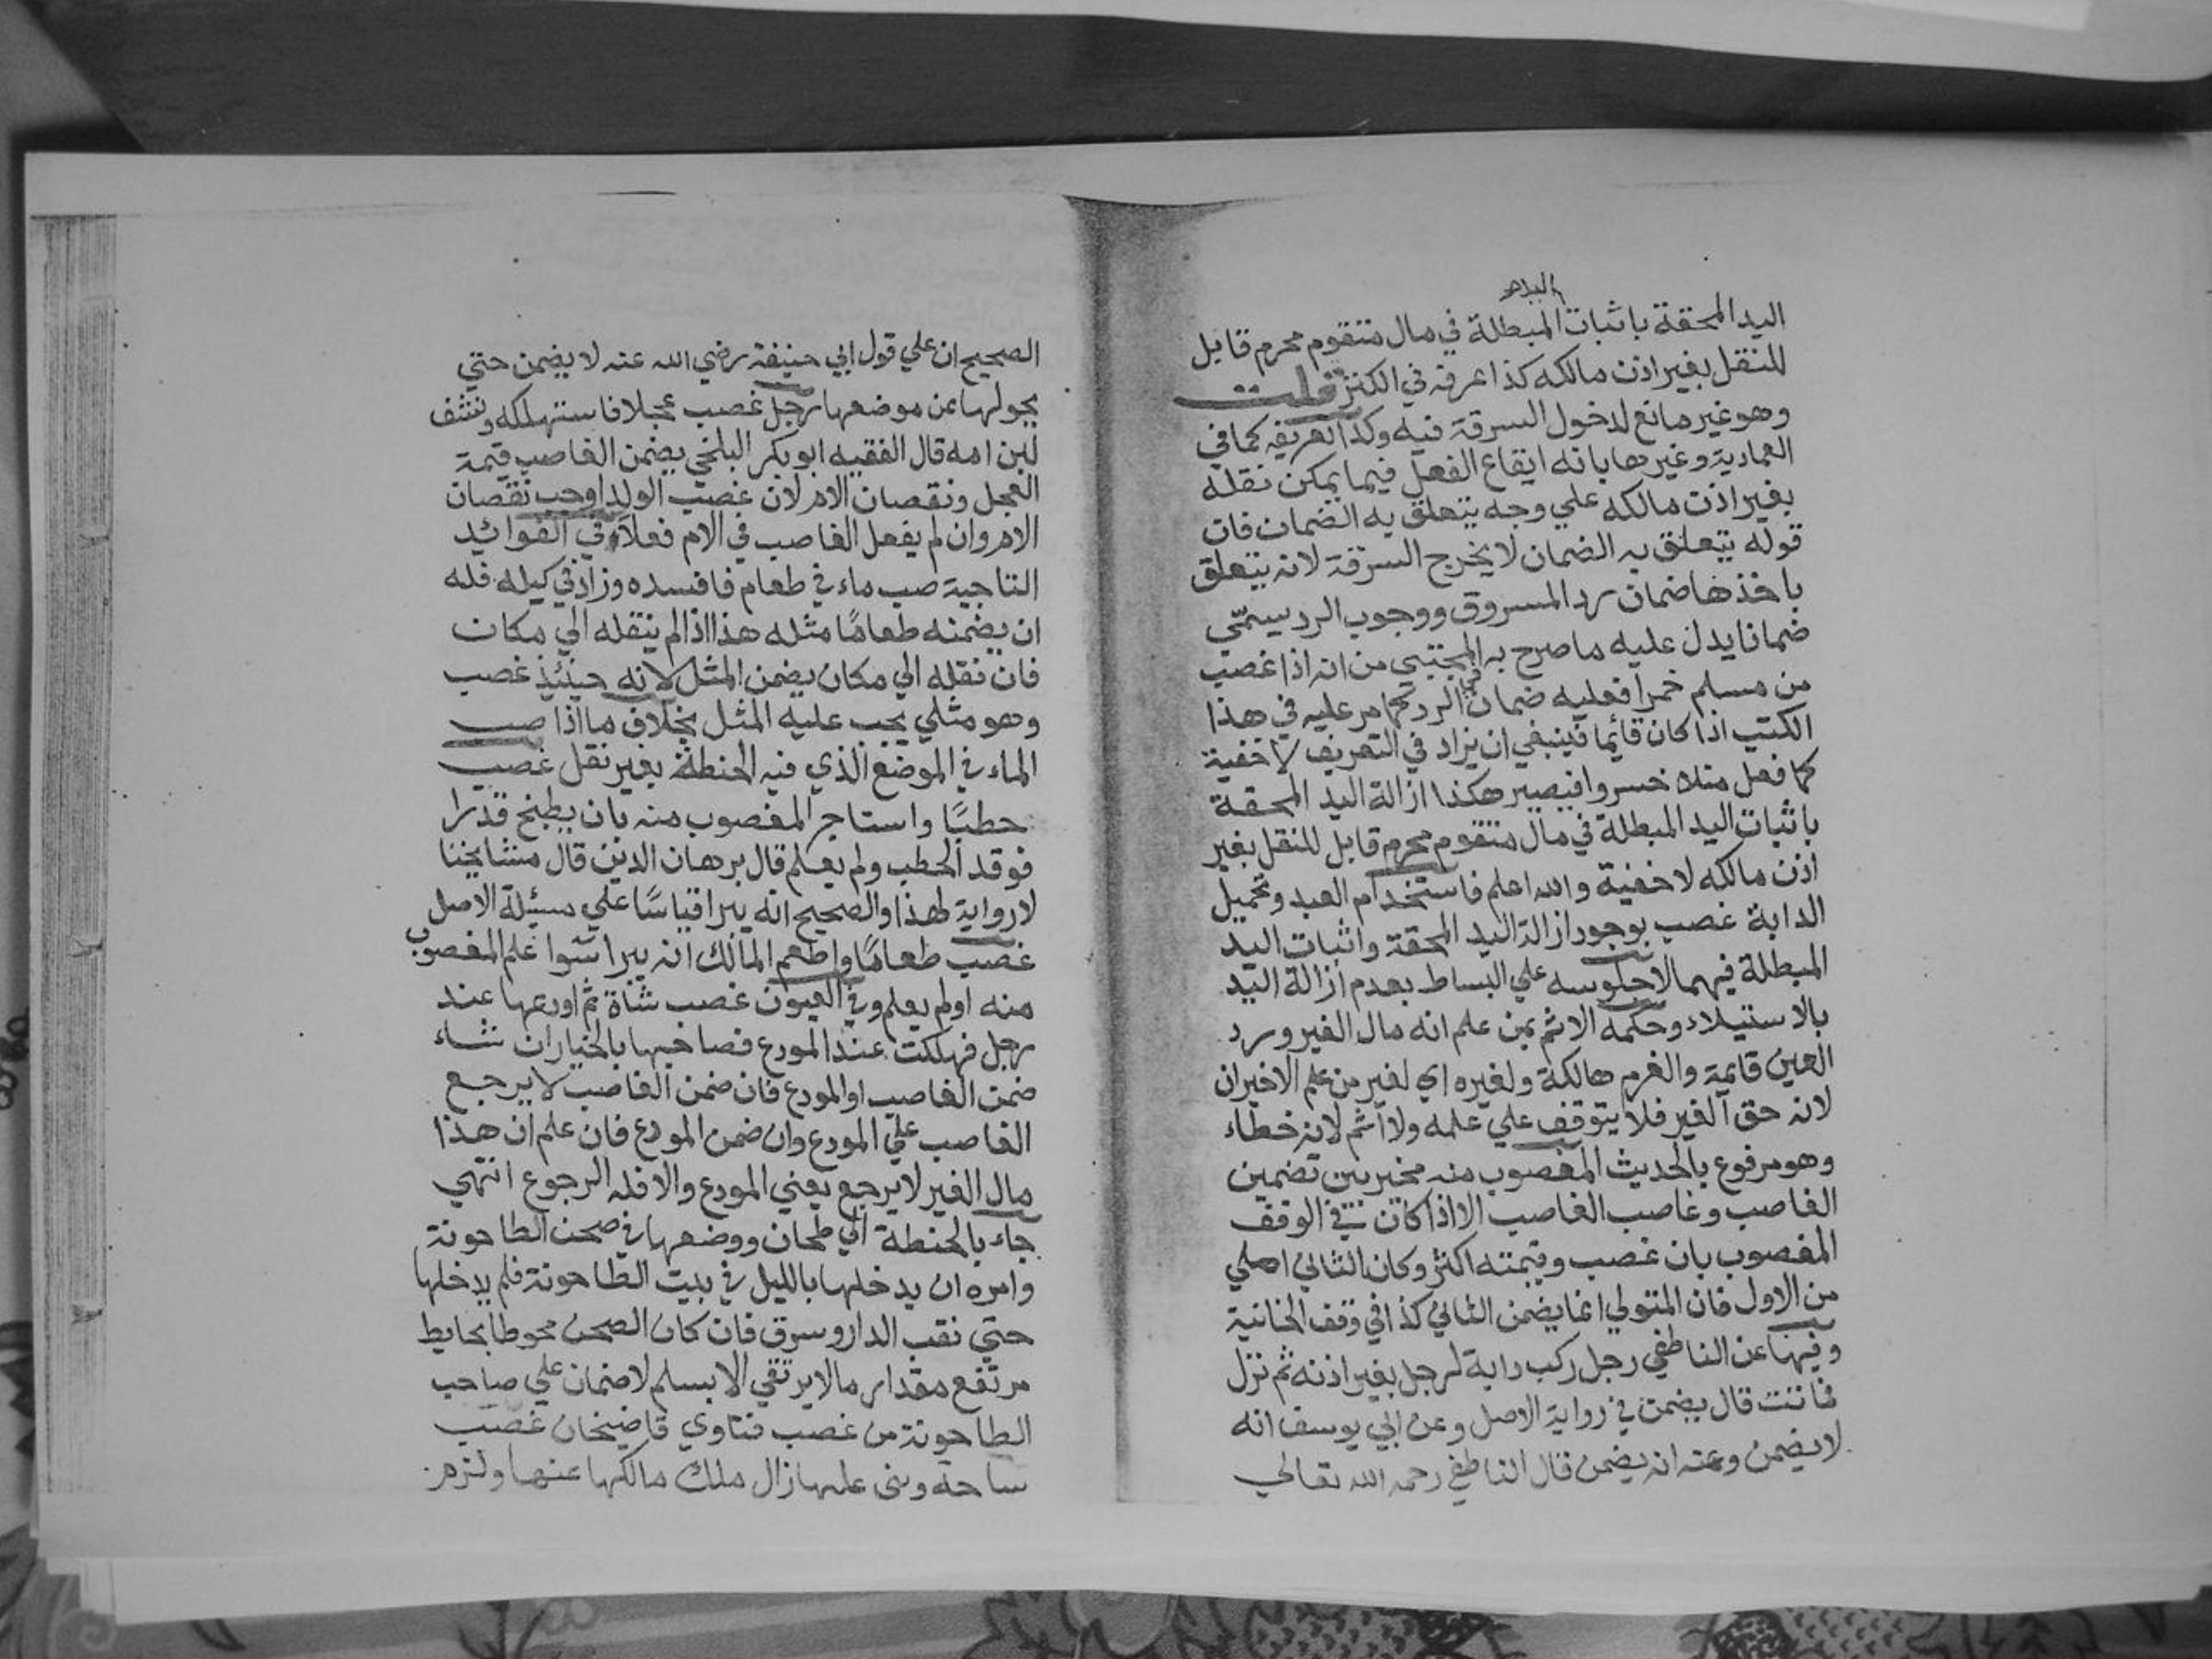 اليد
اليد المحقة باثبات المبطلة في مال متقوم محرم قابل
للنقل بغير اذن مالكه كذا عرفه في الكنز قلت
وهو غير مانع لدخول السرقة فيه وكذا تعريفه كما في
العمادية وغيرها بانه ايقاع الفعل فيما يمكن نقله
بغير اذن مالكه علي وجه يتعلق به الضمان فان
قوله يتعلق به الضمان لا يخرج السرقة لانه يتعلق
باخذها ضمان رد المسروق ووجوب الرد يسمّي
ضمانا يدل عليه ما صرح به المجتبي من انه اذا غصب
من مسلم خمرا فعليه ضمان الرد كما مر عليه في هذا
الكتب اذا كان قائما فينبغي ان يزاد في التعريف لا خفية
كما فعل منلا خسروا فيصير هكذا ازالة اليد المحقة
باثبات اليد المبطلة في مال متقوم محرم قابل للنقل بغير
اذن مالكه لا خفية والله اعلم فاستخدام العبد وتحميل
الدابة غصب بوجود ازالة اليد المحقة واثبات اليد
المبطلة فيهما لا جلوسه علي البساط بعدم ازالة اليد
بالاستيلاء وحكمه الاثم بمن علم انه مال الغير ورد
العين قايمة والغرم هالكة ولغيره اي لغير من علم الاخيران
لانه حق الغير فلا يتوقف علي علمه ولا اثم لانه خطاء
وهو مرفوع بالحديث المغصوب منه مخير بين تضمين
الغاصب وغاصب الغاصب الا اذا كان في الوقف
المغصوب بان غصب وقيمته اكثر وكان الثاني املي
من الاول فان المتولي انما يضمن الثاني كذا في وقف الخانية
وفيها عن الناطفي رجل ركب دابة لرجل بغير اذنه ثم نزل
فماتت قال يضمن في رواية الاصل وعن ابي يوسف انه
لا يضمن وعنه انه يضمن قال الناطفي رحمه الله تعالي
الصحيح ان علي قول ابي حنيفة رضي الله عنه لا يضمن حتي
يحولها عن موضعها رجل غصب عجلا فاستهلكه ونشف
لبن امه قال الفقيه ابو بكر البلخي يضمن الغاصب قيمة
العجل ونقصان الام لان غصب الولد اوجب نقصان
الام وان لم يفعل الغاصب في الام فعلا وفي الفوائد
التاجية صب ماء في طعام فافسده وزاد في كيله فله
ان يضمنه طعامًا مثله هذا اذا لم ينقله الي مكان
فان نقله الي مكان يضمن المثل لانه حينئذ غصب
وهو مثلي يجب عليه المثل بخلاف ما اذا صب
الماء في الموضع الذي فيه الحنطة بغير نقل غصب
حطبًا واستاجر المغصوب منه بان يطبخ قدرا
فوقد الحطب ولم يعلم قال برهان الدين قال مشايخنا
لا رواية لهذا والصحيح انه يبرا قياسًا علي مسئلة الاصل
غصب طعامًا واطعم المالك انه يبرا سوا علم المغصوب
منه اولم يعلم وفي العيون غصب شاة ثم اودعها عند
رجل فهلكت عند المودع فصاحبها بالخيار ان شاء
ضمن الغاصب او المودع فان ضمن الغاصب لا يرجع
الغاصب علي المودع وان ضمن المودع فان علم ان هذا
مال الغير لا يرجع يعني المودع والا فله الرجوع انتهي
جاء بالحنطة الي طحان ووضعها في صحن الطاحونة
وامره ان يدخلها بالليل في بيت الطاحونة فلم يدخلها
حتي نقب الدار وسرق فان كان الصحن محوطا بحايط
مرتفع مقدار ما لا يرتقي الا بسلم لا ضمان علي صاحب
الطاحونة من غصب فتاوي قاضيخان غصب
ساحة وبنى عليها زال ملك مالكها عنها ولزم